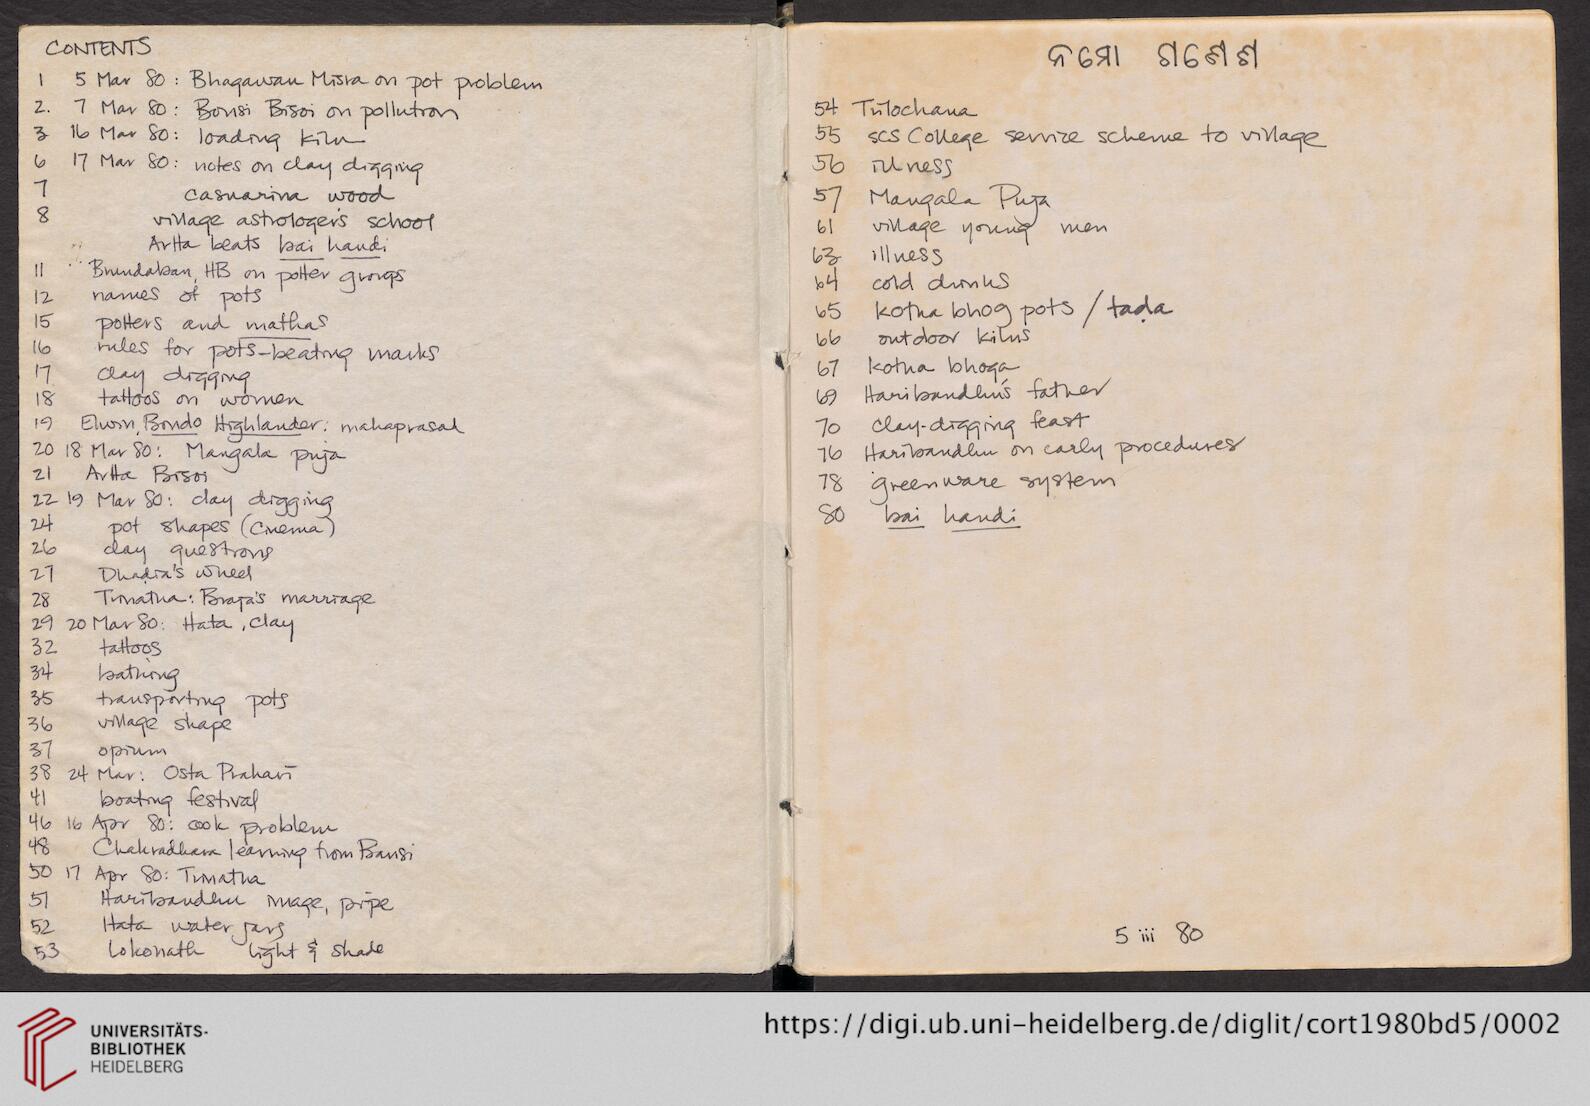 CONTENTS
1 5 Mar 80: Bhagawan Misra on pot problem
2. 7 Mar 80: Bansi Bisoi on pollution
3 16 Mar 80: loading kiln
6 17 Mar 80: notes on clay digging
7 casuarina wood
8 village astrologer's school
Artta beats bai handi
11 Brundaban, HB on potter groups
12 names of pots
15 potters and mathas
16 rules for pots-beating marks
17 clay digging
18 tattoos on women
19 Elwin, Bondo Highlander: mahaprasad
20 18 Mar 80: Mangala puja
21 Artta Bisoi
22 19 Mar 80: clay digging
24 pot shapes (Cinema)
26 clay questions
27 Dhadia's wheel
28 Trinatha: Braja's marriage
29 20 Mar 80: Hata, clay
32 tattoos
34 bathing
35 transporting pots
36 village shape
37 opium
38 24 Mar: Osta Prahari
41 boating festival
46 16 Apr 80: cook problem
48 Chakradhara learning from Bansi
50 17 Apr 80: Trinatha
51 Haribandhu image, pipe
52 Hata water jars
53 Lokonath light & shade
ନମୋ ଗଣେଶ
54 Trilochana
55 SCS College service scheme to village
56 illness
57 Mangala Puja
61 village young men
63 illness
64 cold drinks
65 kotha bhog pots / taḍa
66 outdoor kilns
67 kotha bhoga
69 Haribandhu's father
70 clay-digging feast
76 Haribandhu on early procedures
78 greenware system
80 bai handi
5 iii 80
UNIVERSITÄTS-
BIBLIOTHEK
HEIDELBERG
https://digi.ub.uni-heidelberg.de/diglit/cort1980bd5/0002